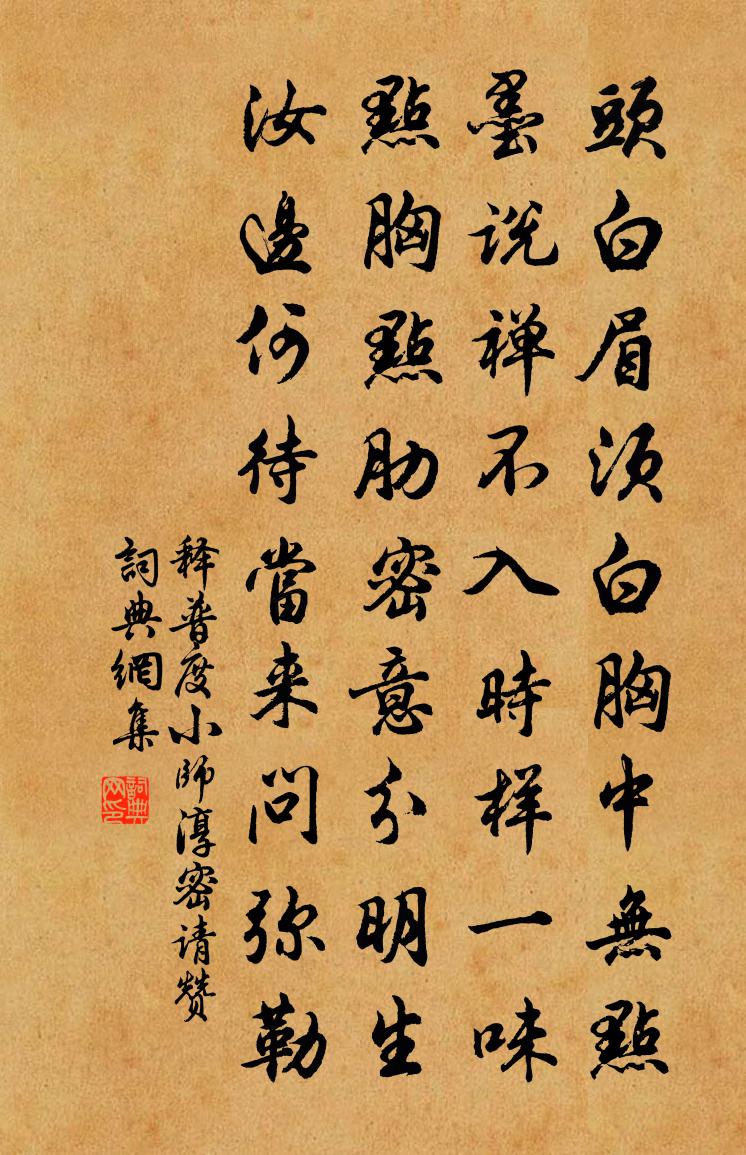 頭白眉須白胸中無點
墨説禅不入時样一味
點胸點肋密意分明生
汝邊何待當来問弥勒
释普度小師淳密请赞
詞典網集
詞典网印